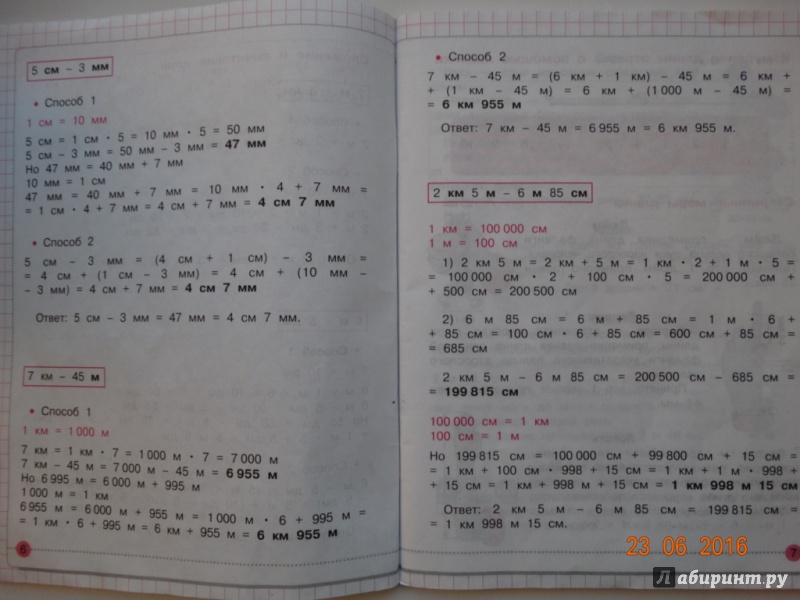 5 см – 3 мм
• Способ 1
1 см = 10 мм
5 см = 1 см · 5 = 10 мм · 5 = 50 мм
5 см – 3 мм = 50 мм – 3 мм = 47 мм
Но 47 мм = 40 мм + 7 мм
10 мм = 1 см
47 мм = 40 мм + 7 мм = 10 мм · 4 + 7 мм =
= 1 см · 4 + 7 мм = 4 см + 7 мм = 4 см 7 мм
• Способ 2
5 см – 3 мм = (4 см + 1 см) – 3 мм =
= 4 см + (1 см – 3 мм) = 4 см + (10 мм –
– 3 мм) = 4 см + 7 мм = 4 см 7 мм
Ответ: 5 см – 3 мм = 47 мм = 4 см 7 мм.
7 км – 45 м
• Способ 1
1 км = 1 000 м
7 км = 1 км · 7 = 1 000 м · 7 = 7 000 м
7 км – 45 м = 7 000 м – 45 м = 6 955 м
Но 6 995 м = 6 000 м + 995 м
1 000 м = 1 км
6 955 м = 6 000 м + 955 м = 1 000 м · 6 + 995 м =
= 1 км · 6 + 995 м = 6 км + 955 м = 6 км 955 м
6
• Способ 2
7 км – 45 м = (6 км + 1 км) – 45 м = 6 км +
+ (1 км – 45 м) = 6 км + (1 000 м – 45 м) =
= 6 км 955 м
Ответ: 7 км – 45 м = 6 955 м = 6 км 955 м.
2 км 5 м – 6 м 85 см
1 км = 100 000 см
1 м = 100 см
1) 2 км 5 м = 2 км + 5 м = 1 км · 2 + 1 м · 5 =
= 100 000 см · 2 + 100 см · 5 = 200 000 см +
+ 500 см = 200 500 см
2) 6 м 85 см = 6 м + 85 см = 1 м · 6 +
+ 85 см = 100 см · 6 + 85 см = 600 см + 85 см =
= 685 см
2 км 5 м – 6 м 85 см = 200 500 см – 685 см =
= 199 815 см
100 000 см = 1 км
100 см = 1 м
Но 199 815 см = 100 000 см + 99 800 см + 15 см =
= 1 км + 100 см · 998 + 15 см = 1 км + 1 м · 998 +
+ 15 см = 1 км + 998 м + 15 см = 1 км 998 м 15 см
Ответ: 2 км 5 м – 6 м 85 см = 199 815 см =
= 1 км 998 м 15 см.
7
23 06 2016
Лабиринт.ру